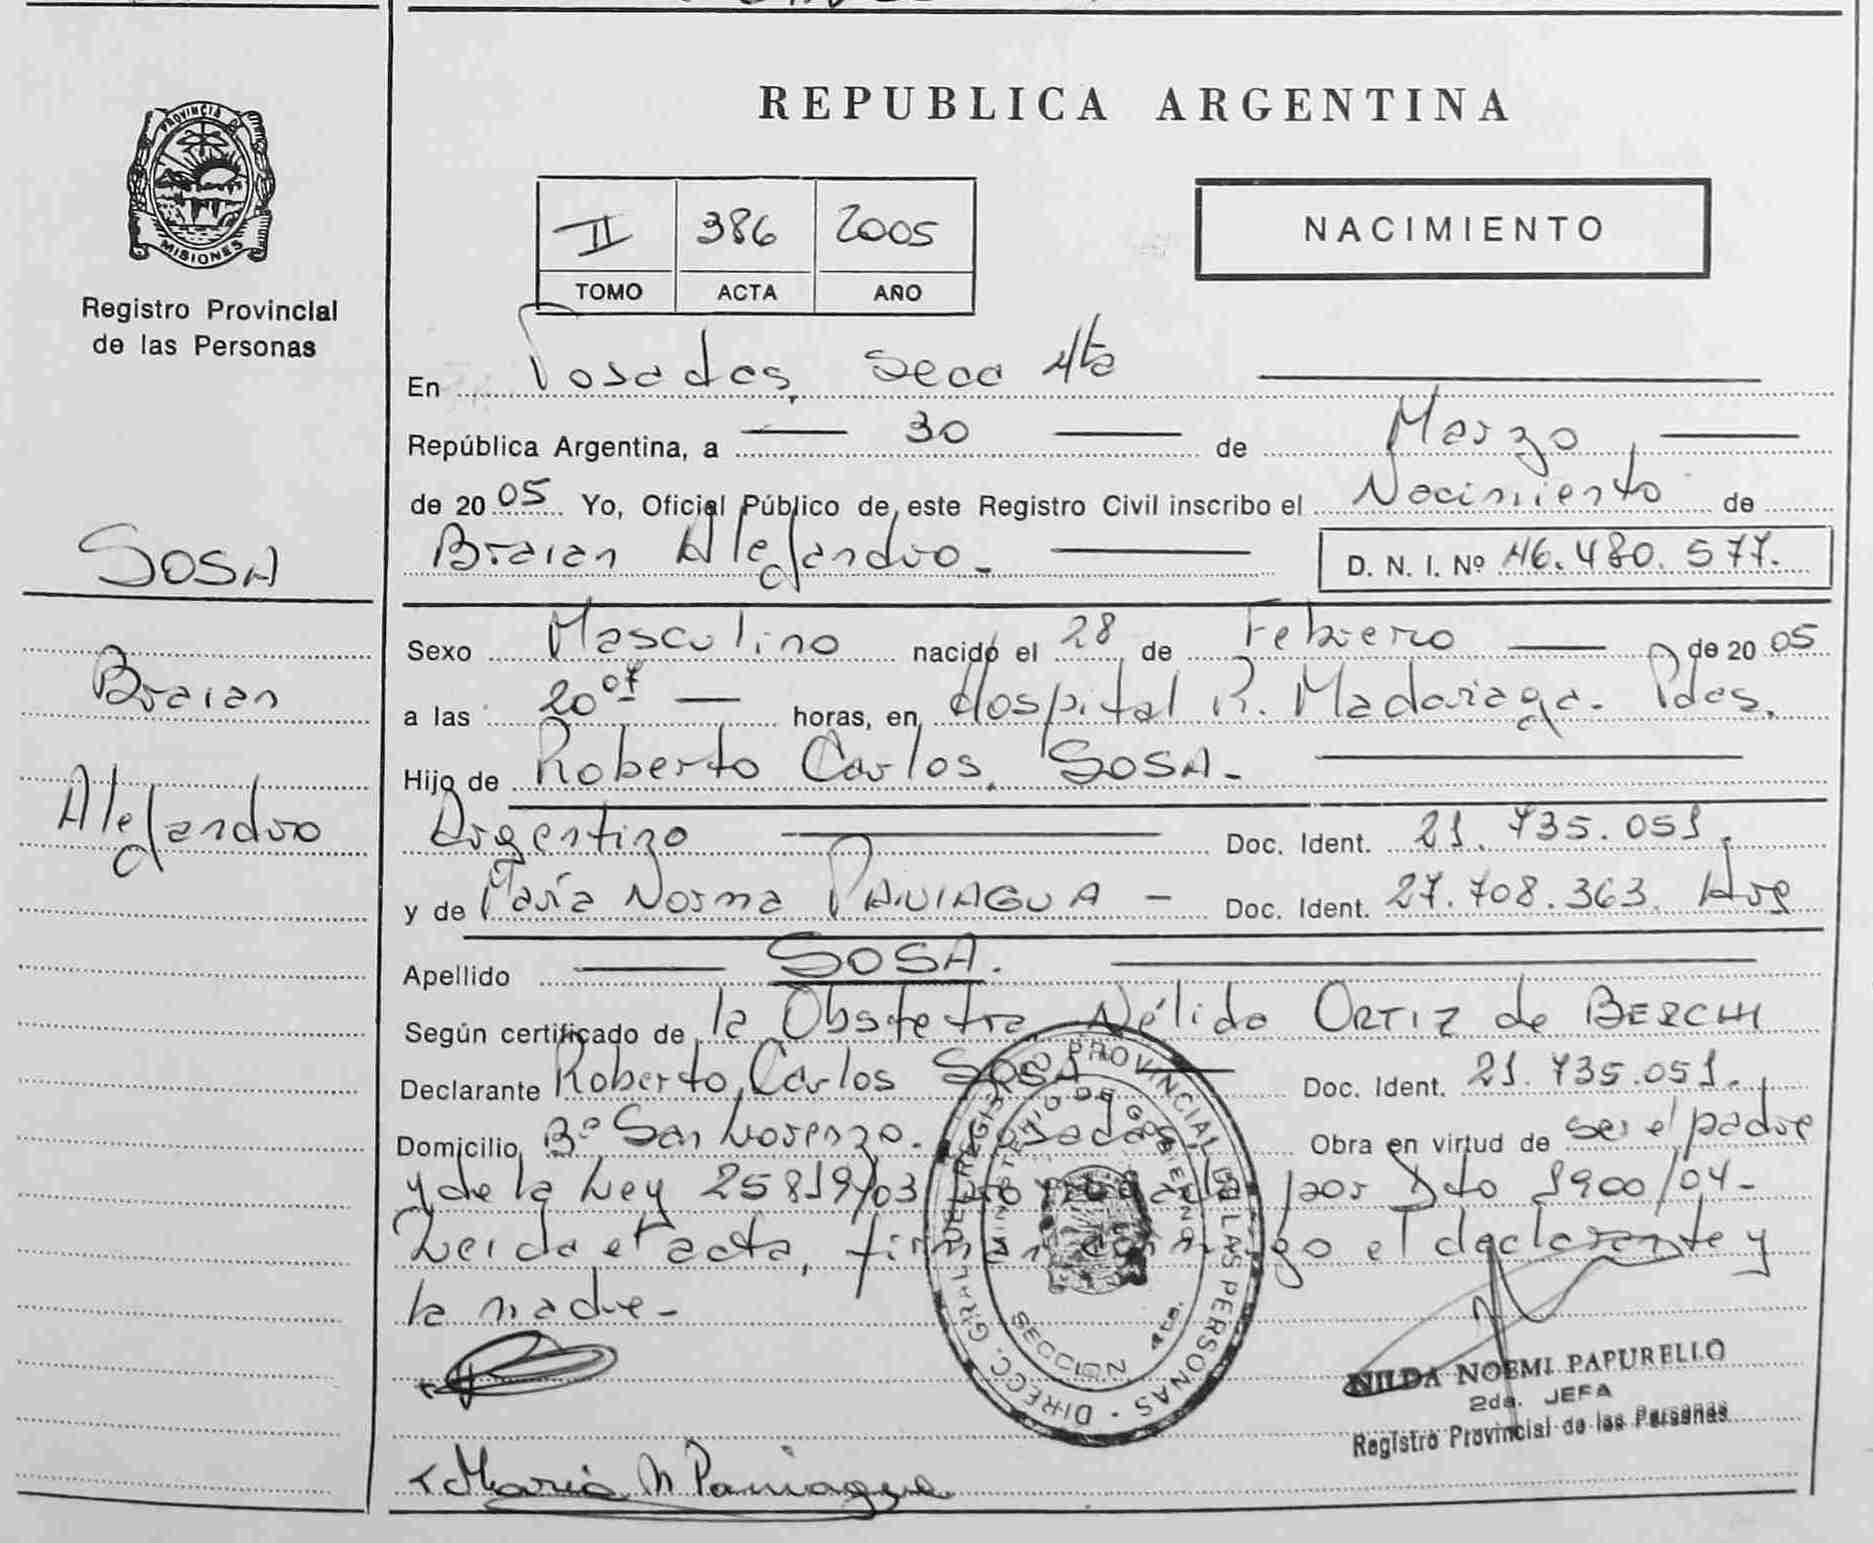 PROVINCIA DE
MISIONES
Registro Provincial
de las Personas
SOSA
Braian
Alejandro
REPUBLICA ARGENTINA
II 386 2005
TOMO ACTA AÑO
NACIMIENTO
En Posadas, Secc 4ta
República Argentina, a 30 de Marzo
de 2005 Yo, Oficial Público de este Registro Civil inscribo el Nacimiento de
Braian Alejandro. D. N. I. Nº 46.480.577.
Sexo Masculino nacido el 28 de Febrero de 2005
a las 20 07 horas, en Hospital R. Madariaga. Pdas.
Hijo de Roberto Carlos, SOSA.
Argentino Doc. Ident. 21.735.051.
y de María Norma PANIAGUA - Doc. Ident. 27.708.363. Arg
Apellido SOSA.
Según certificado de la Obstetra Nélida ORTIZ de BERCHI
Declarante Roberto Carlos SOSA Doc. Ident. 21.735.051.
Domicilio Bº San Lorenzo. Posadas Obra en virtud de ser el padre
y de la Ley 25819/03 por Dto 1900/04-
Leida el acta, firman conmigo el declarante y
la madre-
DIRECC. GRAL. DEL REGISTRO PROVINCIAL DE LAS PERSONAS
MINISTERIO DE GOBIERNO
SECCION 4ta.
NILDA NOEMI PAPURELLO
2da. JEFA
Registro Provincial de las Personas
Maria N Paniagua